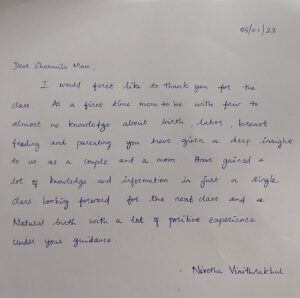 05/01/23
Dear Sharmila Mam,
I would first like to thank you for the
class. As a first time mom to be with few to
almost no knowledge about birth, labor, breast
feeding and parenting you have given a deep insight
to us as a couple and a mom. Have gained a
lot of knowledge and information in just a single
class looking forward for the next class and a
Natural birth with a lot of positive experience
under your guidance.
- Nivetha